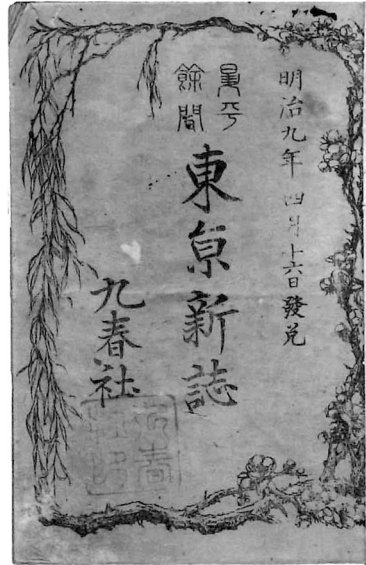 明治九年四月十六日發兌
昇平
東亰新誌
九春社